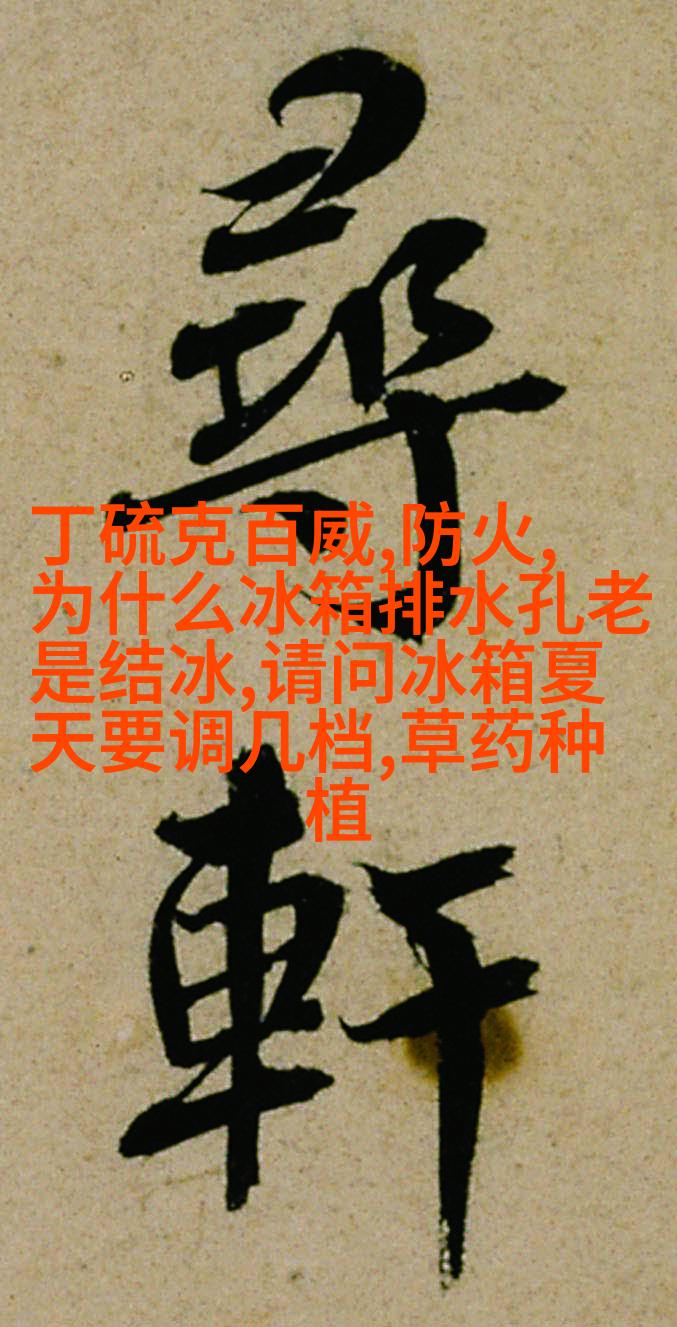 尋
軒
丁硫克百威,防火,
为什么冰箱排水孔老
是结冰,请问冰箱夏
天要调几档,草药种
植